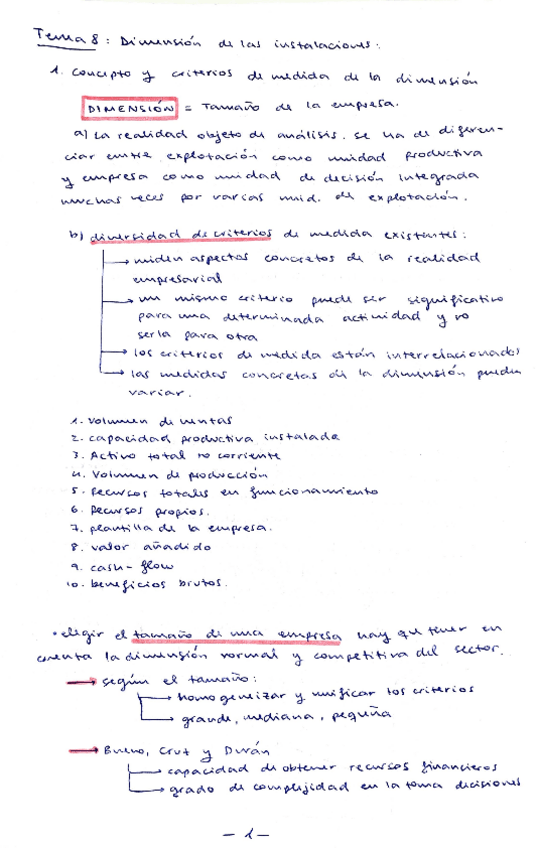 Tema 8: Dimensión de las instalaciones:
1. concepto y criterios de medida de la dimensión
DIMENSIÓN = Tamaño de la empresa.
a) La realidad objeto de análisis. se ha de diferen-
ciar entre explotación como unidad productiva
y empresa como unidad de decisión integrada
muchas veces por varias unid. de explotación.
b) diversidad de criterios de medida existentes:
→ miden aspectos concretos de la realidad
empresarial
→ un mismo criterio puede ser significativo
para una determinada actividad y no
serla para otra
→ los criterios de medida están interrelacionados
→ las medidas concretas de la dimensión pueden
variar.
1. volumen de ventas
2. capacidad productiva instalada
3. Activo total no corriente
4. Volumen de producción
5. Recursos totales en funcionamiento
6. Recursos propios.
7. plantilla de la empresa.
8. valor añadido
9. cash-flow
10. beneficios brutos.
• elegir el tamaño de una empresa hay que tener en
cuenta la dimensión normal y competitiva del sector.
→ según el tamaño:
→ homogeneizar y unificar los criterios
→ grande, mediana, pequeña
→ Bueno, Cruz y Durán
→ capacidad de obtener recursos financieros
→ grado de complejidad en la toma decisiones
- 1 -